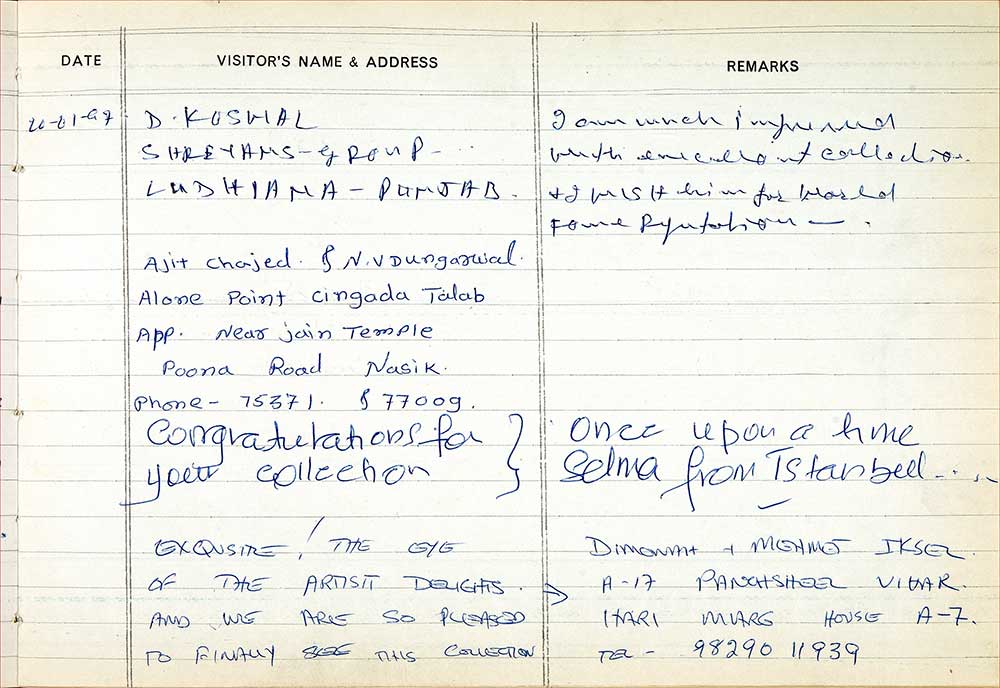 DATE
VISITOR'S NAME & ADDRESS
REMARKS
D. KUSHAL
SHREYAMS-GROUP-...
LUDHIANA - PUNJAB.
I am much impressed
with collection.
+ I wish him for world
fame Reputation —.
Ajit Chajed. & N.V Dungarwal.
Alone Point Cingada Talab
App. Near jain Temple
Poona Road Nasik.
Phone - 75371. & 77009.
Congratulations for
your collection
Once upon a time
Selma from Istanbul...
EXQUSITE! THE EYE
OF THE ARTIST DELIGHTS.
AND WE ARE SO PLEASED
TO FINALLY SEE THIS COLLECTION
+ MEHMET IKSEL.
A-17 PANCHSHEEL VIHAR.
HARI MARG HOUSE A-7.
TEL - 98290 11939